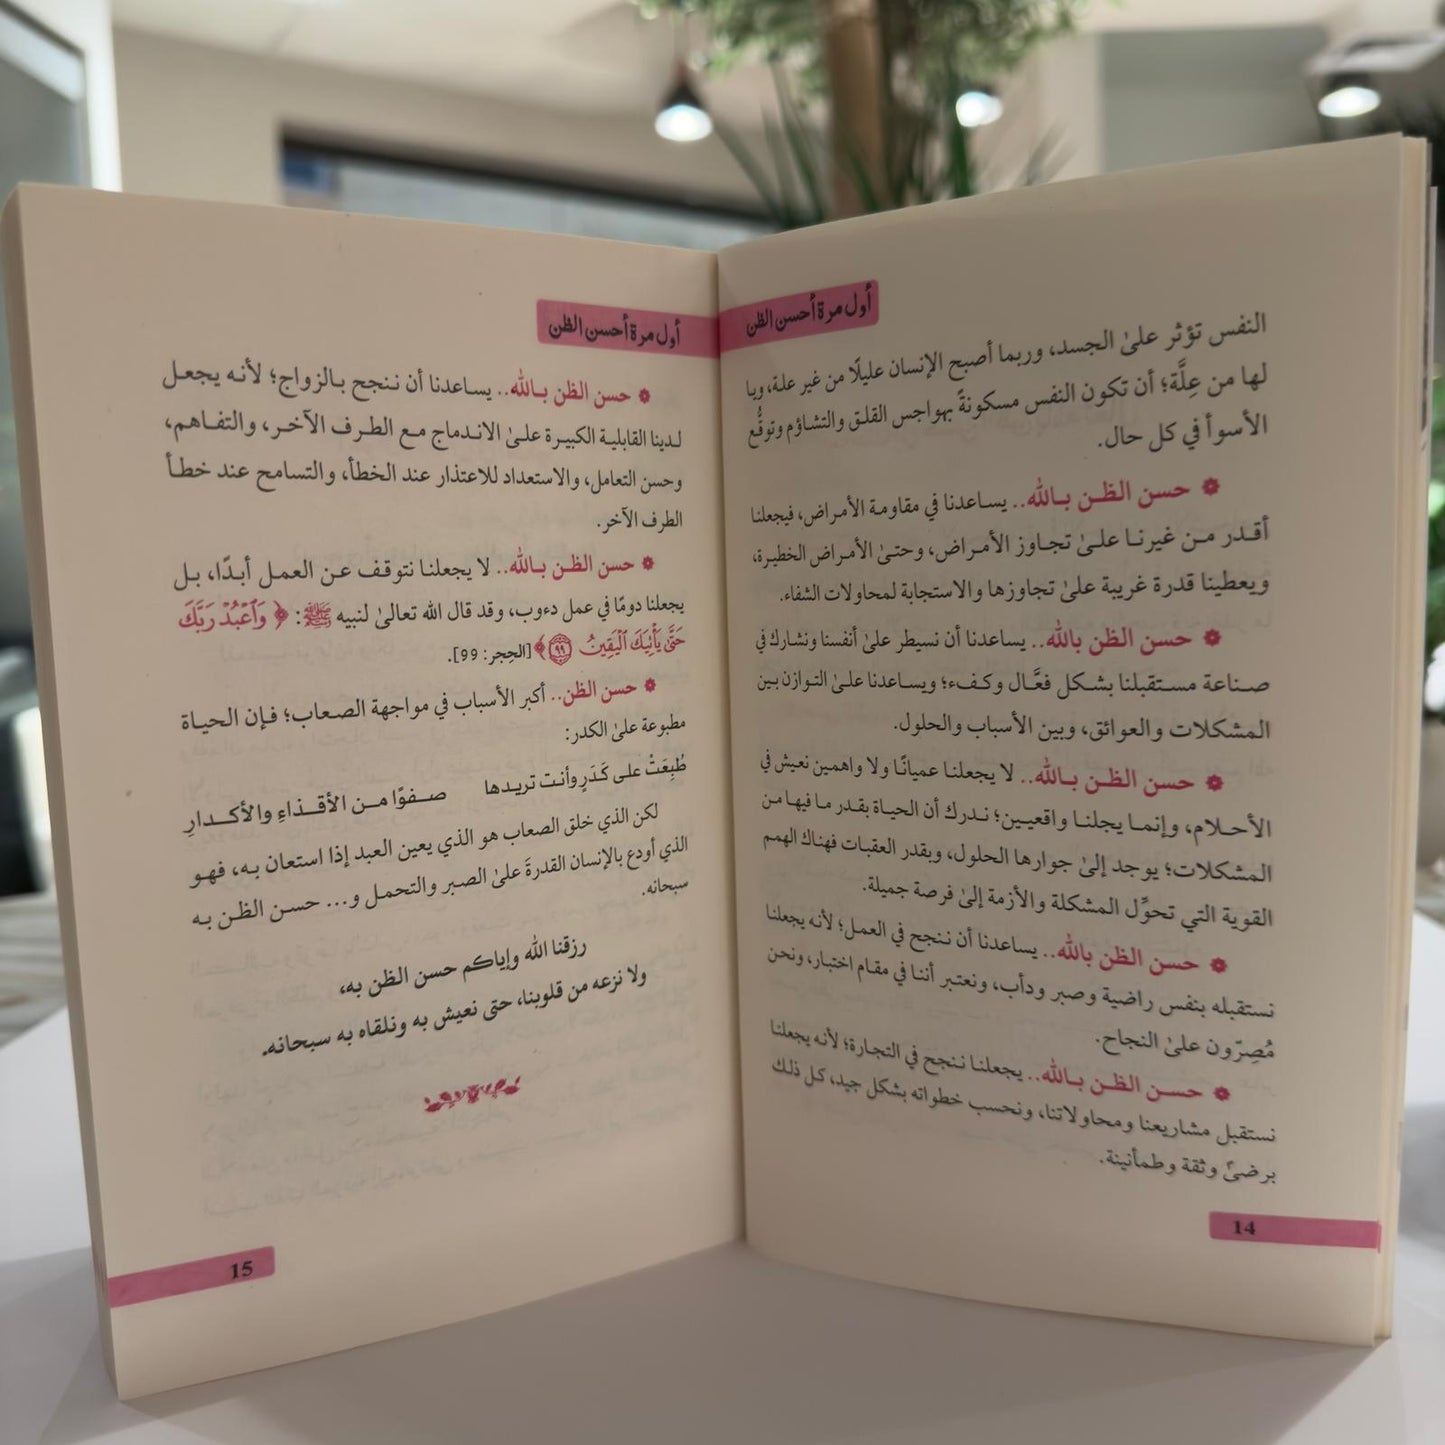 أول مرة أحسن الظن
النفس تؤثر علىٰ الجسد، وربما أصبح الإنسان عليلًا من غير علة، ويا
لها من عِلَّة؛ أن تكون النفس مسكونةً بهواجس القلق والتشاؤم وتوقُّع
الأسوأ في كل حال.
❁ حسن الظـن بـالله.. يسـاعدنا في مقاومة الأمـراض، فيجعلنا
أقـدر مـن غيرنـا علـىٰ تجـاوز الأمـراض، وحتـىٰ الأمـراض الخطيـرة،
ويعطينا قدرة غريبة علىٰ تجاوزها والاستجابة لمحاولات الشفاء.
❁ حسن الظن بالله.. يساعدنا أن نسيطر علىٰ أنفسنا ونشارك في
صـناعة مسـتقبلنا بشـكل فعَّـال وكـفء؛ ويسـاعدنا علـىٰ التـوازن بـين
المشكلات والعوائق، وبين الأسباب والحلول.
❁ حسـن الظـن بـالله.. لا يجعلنـا عميانًـا ولا واهمين نعيش في
الأحـلام، وإنمـا يجلنـا واقعيـين؛ نـدرك أن الحيـاة بقـدر مـا فيهـا مـن
المشـكلات؛ يوجـد إلـىٰ جوارهـا الحلول، وبقدر العقبات فهناك الهمم
القوية التي تحوِّل المشكلة والأزمة إلىٰ فرصة جميلة.
❁ حسن الظن بالله.. يساعدنا أن ننجح في العمل؛ لأنه يجعلنا
نستقبله بنفس راضية وصبر ودأب، ونعتبر أننا في مقام اختبار، ونحن
مُصِرّون علىٰ النجاح.
❁ حسـن الظـن بـالله.. يجعلنا ننجح في التجارة؛ لأنه يجعلنا
نستقبل مشاريعنا ومحاولاتنا، ونحسب خطواته بشكل جيد، كـل ذلـك
برضىً وثقة وطمأنينة.
14
أول مرة أحسن الظن
❁ حسن الظن بـالله.. يسـاعدنا أن ننجح بـالزواج؛ لأنـه يجعـل
لـدينا القابليـة الكبيـرة علـىٰ الانـدماج مـع الطـرف الآخـر، والتفـاهم،
وحسن التعامل، والاستعداد للاعتذار عند الخطأ، والتسامح عند خطـأ
الطرف الآخر.
❁ حسن الظـن بـالله.. لا يجعلنـا نتوقـف عـن العمـل أبـدًا، بـل
يجعلنا دومًا في عمل دءوب، وقد قال الله تعالىٰ لنبيه ﷺ: ﴿ وَٱعْبُدْ رَبَّكَ
حَتَّىٰ يَأْتِيَكَ ٱلْيَقِينُ ۝٩٩﴾ [الحِجر: 99].
❁ حسن الظن.. أكبر الأسباب في مواجهة الصعاب؛ فـإن الحيـاة
مطبوعة علىٰ الكدر:
طُبِعَتْ على كَدَرٍ وأنت تريدها صـفوًا مـن الأقـذاءِ والأكـدارِ
لكن الذي خلق الصعاب هو الذي يعين العبد إذا استعان بـه، فهـو
الذي أودع بالإنسان القدرةَ علىٰ الصبر والتحمل و... حسن الظـن بـه
سبحانه.
رزقنا الله وإياكم حسن الظن به،
ولا نزعه من قلوبنا، حتى نعيش به ونلقاه به سبحانه.
15